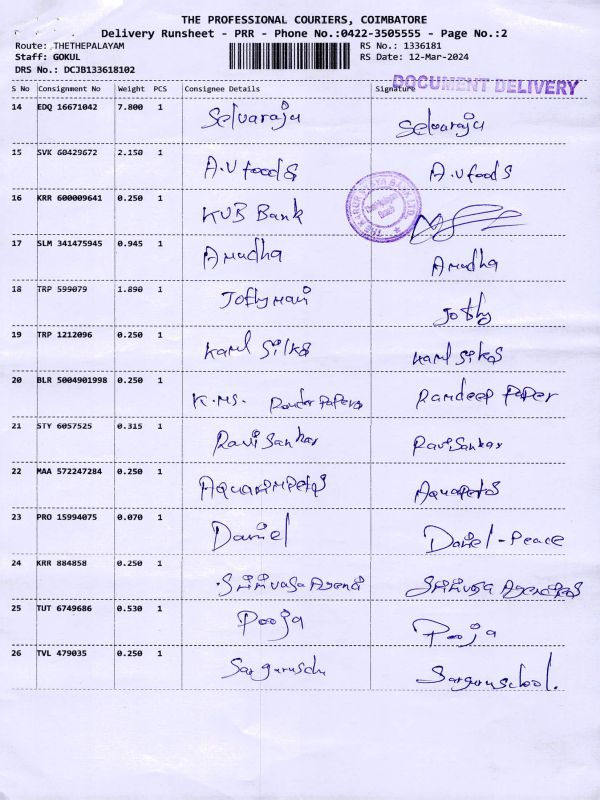 THE PROFESSIONAL COURIERS, COIMBATORE
Delivery Runsheet - PRR - Phone No.:0422-3505555 - Page No.:2
Route: THETHEPALAYAM RS No.: 1336181
Staff: GOKUL RS Date: 12-Mar-2024
DRS No.: DCJB133618102
DOCUMENT DELIVERY
S No Consignment No Weight PCS Consignee Details Signature
14 EDQ 16671042 7.800 1 Selvaraju Selvaraju
15 SVK 60429672 2.150 1 A.V foods A.V foods
16 KRR 600009641 0.250 1 KVB Bank
THE KARUR VYSYA BANK LTD.
17 SLM 341475945 0.945 1 Amudha Amudha
18 TRP 599079 1.890 1 Jothymani Jothy
19 TRP 1212096 0.250 1 Kaml Silks Kaml Silks
20 BLR 5004901998 0.250 1 K.MS. Papers Ramdeep Paper
21 STY 6057525 0.315 1 Ravi Sankar Ravi Sankar
22 MAA 572247284 0.250 1 Aquapets
23 PRO 15994075 0.070 1 Daniel Daniel - Peace
24 KRR 884858 0.250 1
25 TUT 6749686 0.530 1 Pooja Pooja
26 TVL 479035 0.250 1 Sarguruschool.